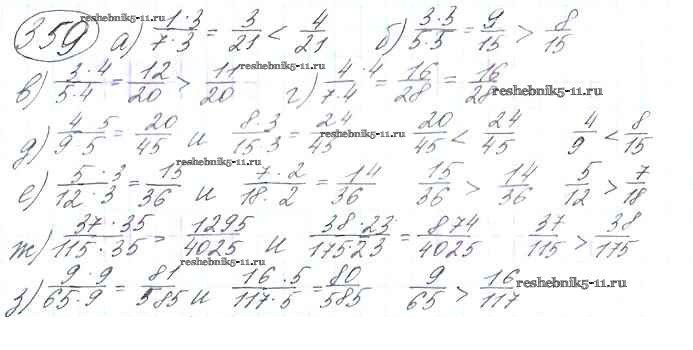 359 а) 1·3/7·3 = 3/21 < 4/21 б) 3·3/5·3 = 9/15 > 8/15
в) 3·4/5·4 = 12/20 > 11/20 г) 4·4/7·4 = 16/28 = 16/28
д) 4·5/9·5 = 20/45 и 8·3/15·3 = 24/45 20/45 < 24/45 4/9 < 8/15
е) 5·3/12·3 = 15/36 и 7·2/18·2 = 14/36 15/36 > 14/36 5/12 > 7/18
ж) 37·35/115·35 > 1295/4025 и 38·23/175·23 = 874/4025 37/115 > 38/175
з) 9·9/65·9 = 81/585 и 16·5/117·5 = 80/585 9/65 > 16/117
reshebnik5-11.ru
reshebnik5-11.ru
reshebnik5-11.ru
reshebnik5-11.ru
reshebnik5-11.ru
reshebnik5-11.ru
reshebnik5-11.ru
reshebnik5-11.ru